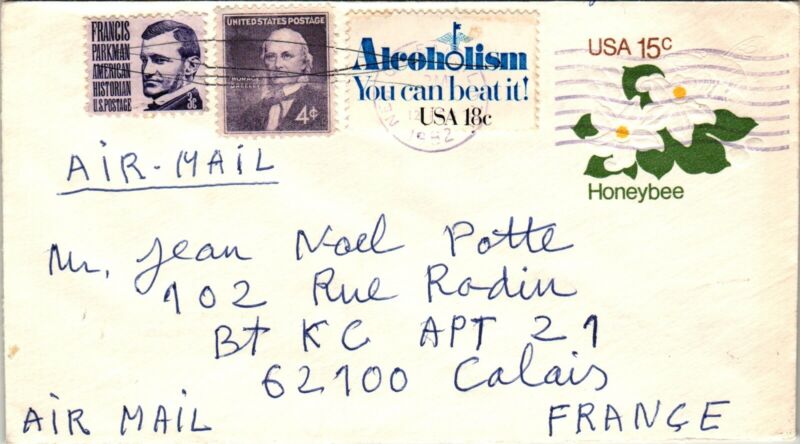 FRANCIS
PARKMAN
AMERICAN
HISTORIAN
U.S. POSTAGE
3¢
UNITED STATES POSTAGE
HORACE
GREELEY
4¢
Alcoholism
You can beat it!
USA 18c
1982
USA 15c
Honeybee
AIR-MAIL
Mr. Jean Noel Potte
102 Rue Rodin
Bt KC APT 21
62100 Calais
AIR MAIL
FRANCE